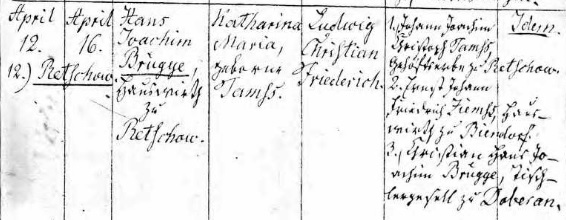 April
12.
12.) Retschow.
April
16.
Hans
Joachim
Brügge,
Hauswirth
zu
Retschow.
Katharina
Maria,
geborne
Tamß.
Ludwig
Christian
Friederich.
1. Johann Joachim
Christoph Tamß,
Gehöftserbe zu Retschow.
2. Ernst Johann
Friedrich Ziemß, Haus-
wirth zu Biendorf.
3. Christian Hans Jo-
achim Brügge, Tisch-
lergesell zu Doberan.
Idem.